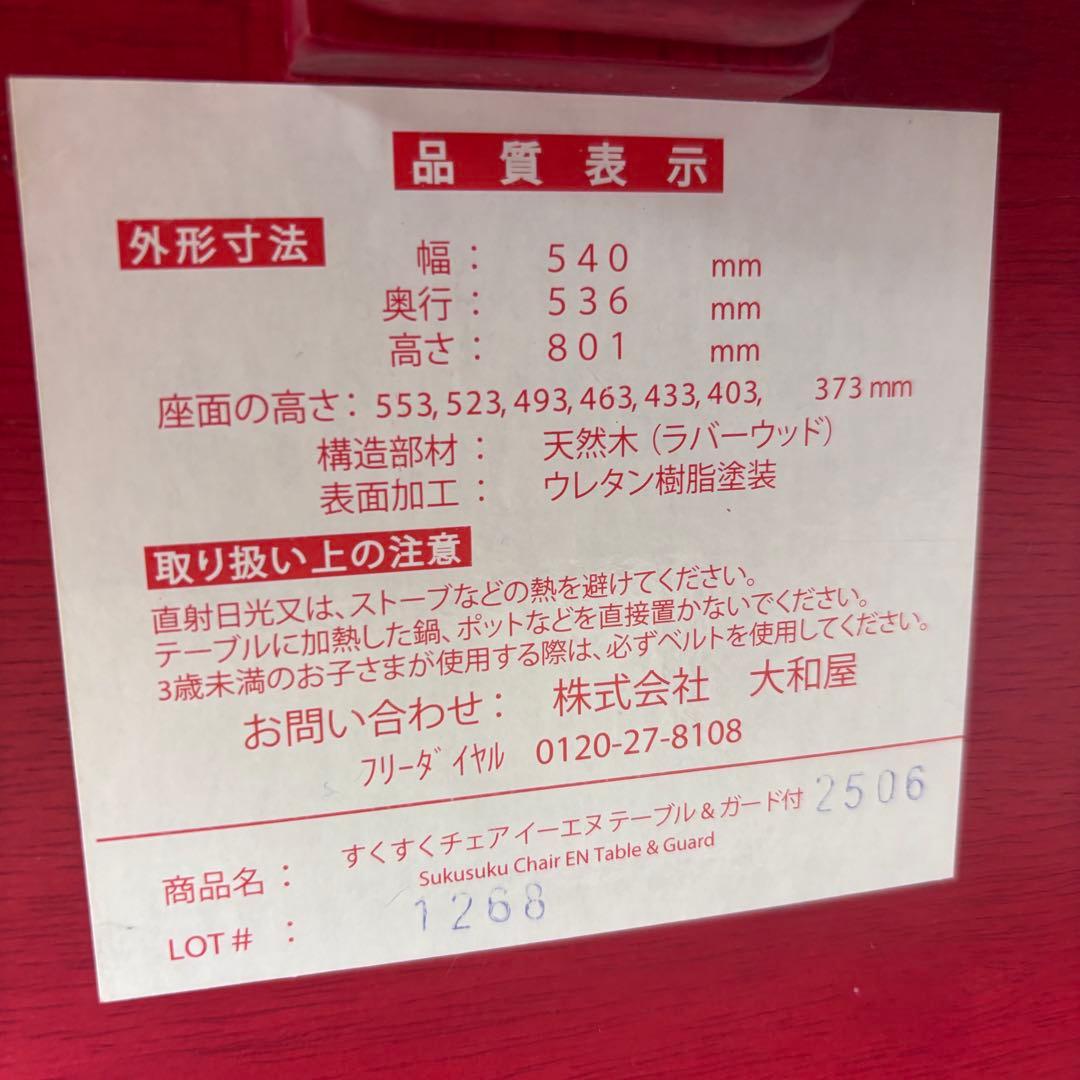 品質表示
外形寸法
幅： 540 mm
奥行： 536 mm
高さ： 801 mm
座面の高さ： 553, 523, 493, 463, 433, 403, 373 mm
構造部材： 天然木（ラバーウッド）
表面加工： ウレタン樹脂塗装
取り扱い上の注意
直射日光又は、ストーブなどの熱を避けてください。
テーブルに加熱した鍋、ポットなどを直接置かないでください。
3歳未満のお子さまが使用する際は、必ずベルトを使用してください。
お問い合わせ： 株式会社 大和屋
ﾌﾘｰﾀﾞｲﾔﾙ 0120-27-8108
商品名： すくすくチェア イーエヌ テーブル & ガード付 2506
Sukusuku Chair EN Table & Guard
LOT #： 1268